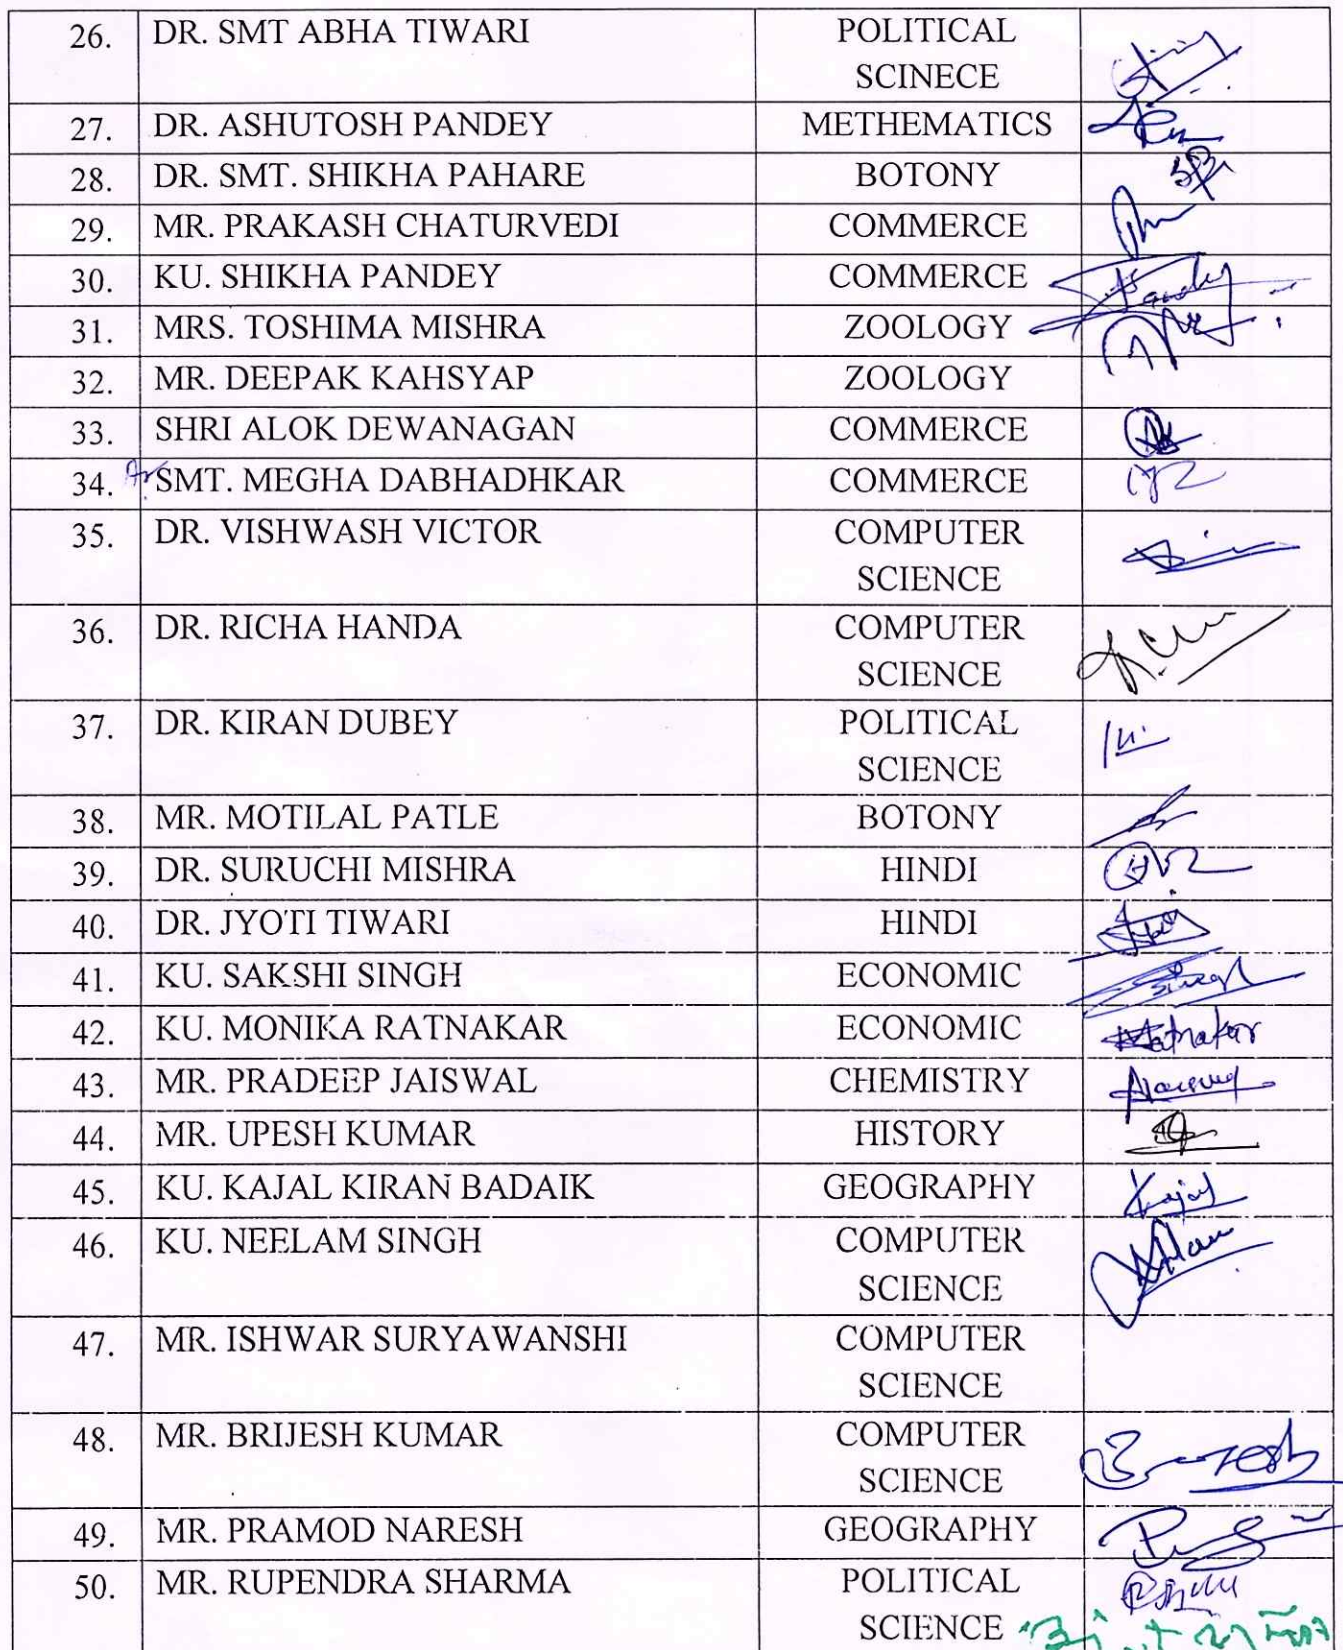 26. DR. SMT ABHA TIWARI POLITICAL
SCINECE
27. DR. ASHUTOSH PANDEY METHEMATICS
28. DR. SMT. SHIKHA PAHARE BOTONY
29. MR. PRAKASH CHATURVEDI COMMERCE
30. KU. SHIKHA PANDEY COMMERCE Pandey
31. MRS. TOSHIMA MISHRA ZOOLOGY
32. MR. DEEPAK KAHSYAP ZOOLOGY
33. SHRI ALOK DEWANAGAN COMMERCE
34. SMT. MEGHA DABHADHKAR COMMERCE
35. DR. VISHWASH VICTOR COMPUTER
SCIENCE
36. DR. RICHA HANDA COMPUTER
SCIENCE
37. DR. KIRAN DUBEY POLITICAL
SCIENCE
38. MR. MOTILAL PATLE BOTONY
39. DR. SURUCHI MISHRA HINDI
40. DR. JYOTI TIWARI HINDI
41. KU. SAKSHI SINGH ECONOMIC Singh
42. KU. MONIKA RATNAKAR ECONOMIC Ratnakar
43. MR. PRADEEP JAISWAL CHEMISTRY
44. MR. UPESH KUMAR HISTORY
45. KU. KAJAL KIRAN BADAIK GEOGRAPHY Kajal
46. KU. NEELAM SINGH COMPUTER
SCIENCE
47. MR. ISHWAR SURYAWANSHI COMPUTER
SCIENCE
48. MR. BRIJESH KUMAR COMPUTER
SCIENCE
49. MR. PRAMOD NARESH GEOGRAPHY
50. MR. RUPENDRA SHARMA POLITICAL
SCIENCE